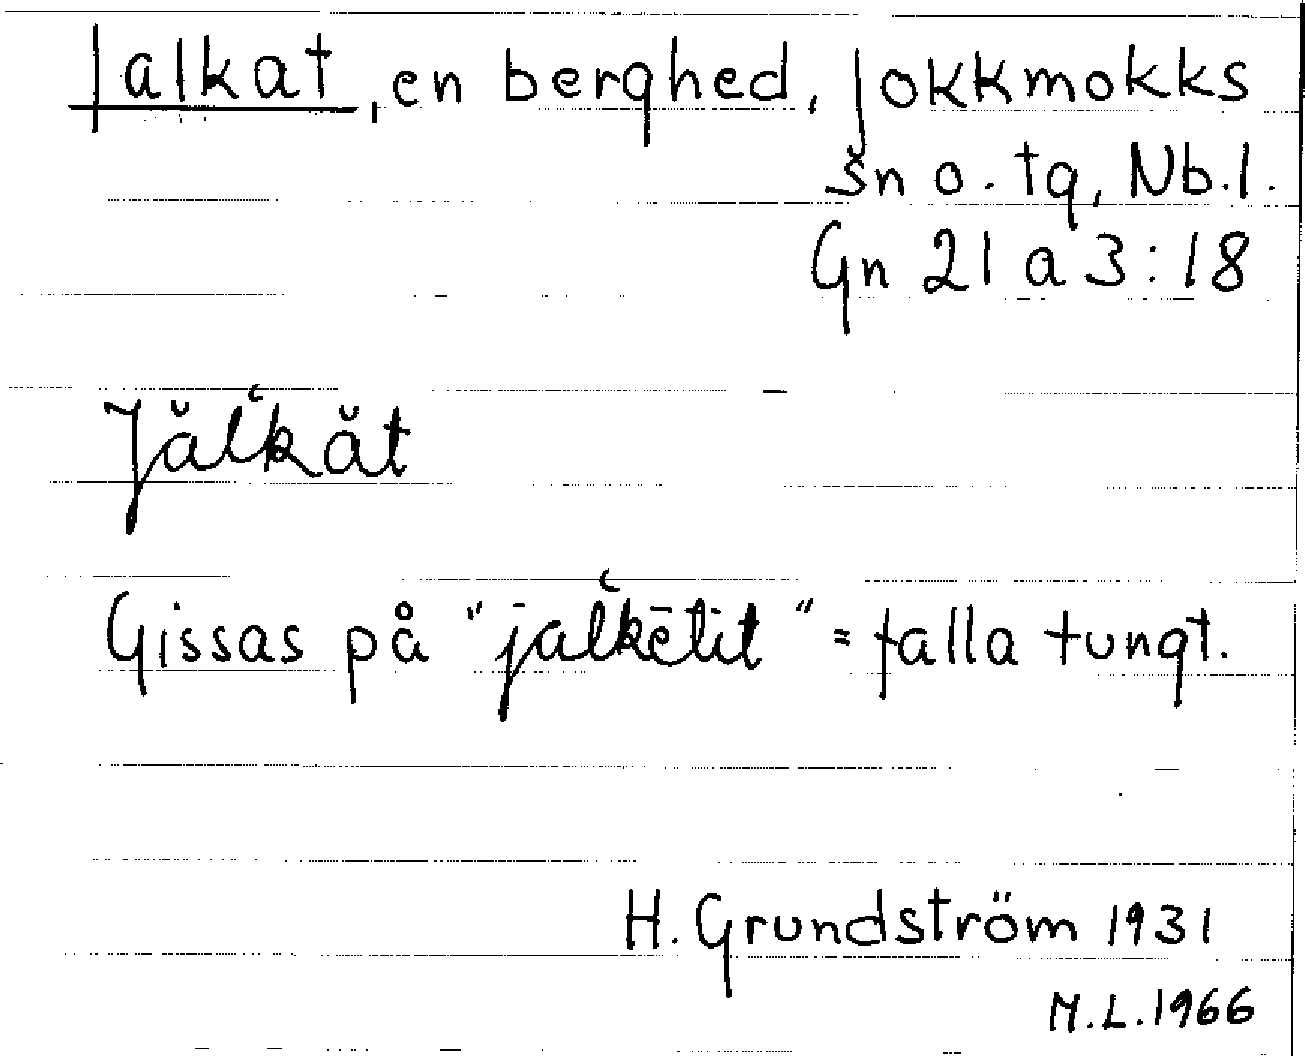 Jalkat, en berghed, Jokkmokks
sn o. tg, Nb.l.
Gn 21 a 3:18
Jălʿkăt
Gissas på "jalʿkētit" = falla tungt.
H. Grundström 1931
M.L. 1966